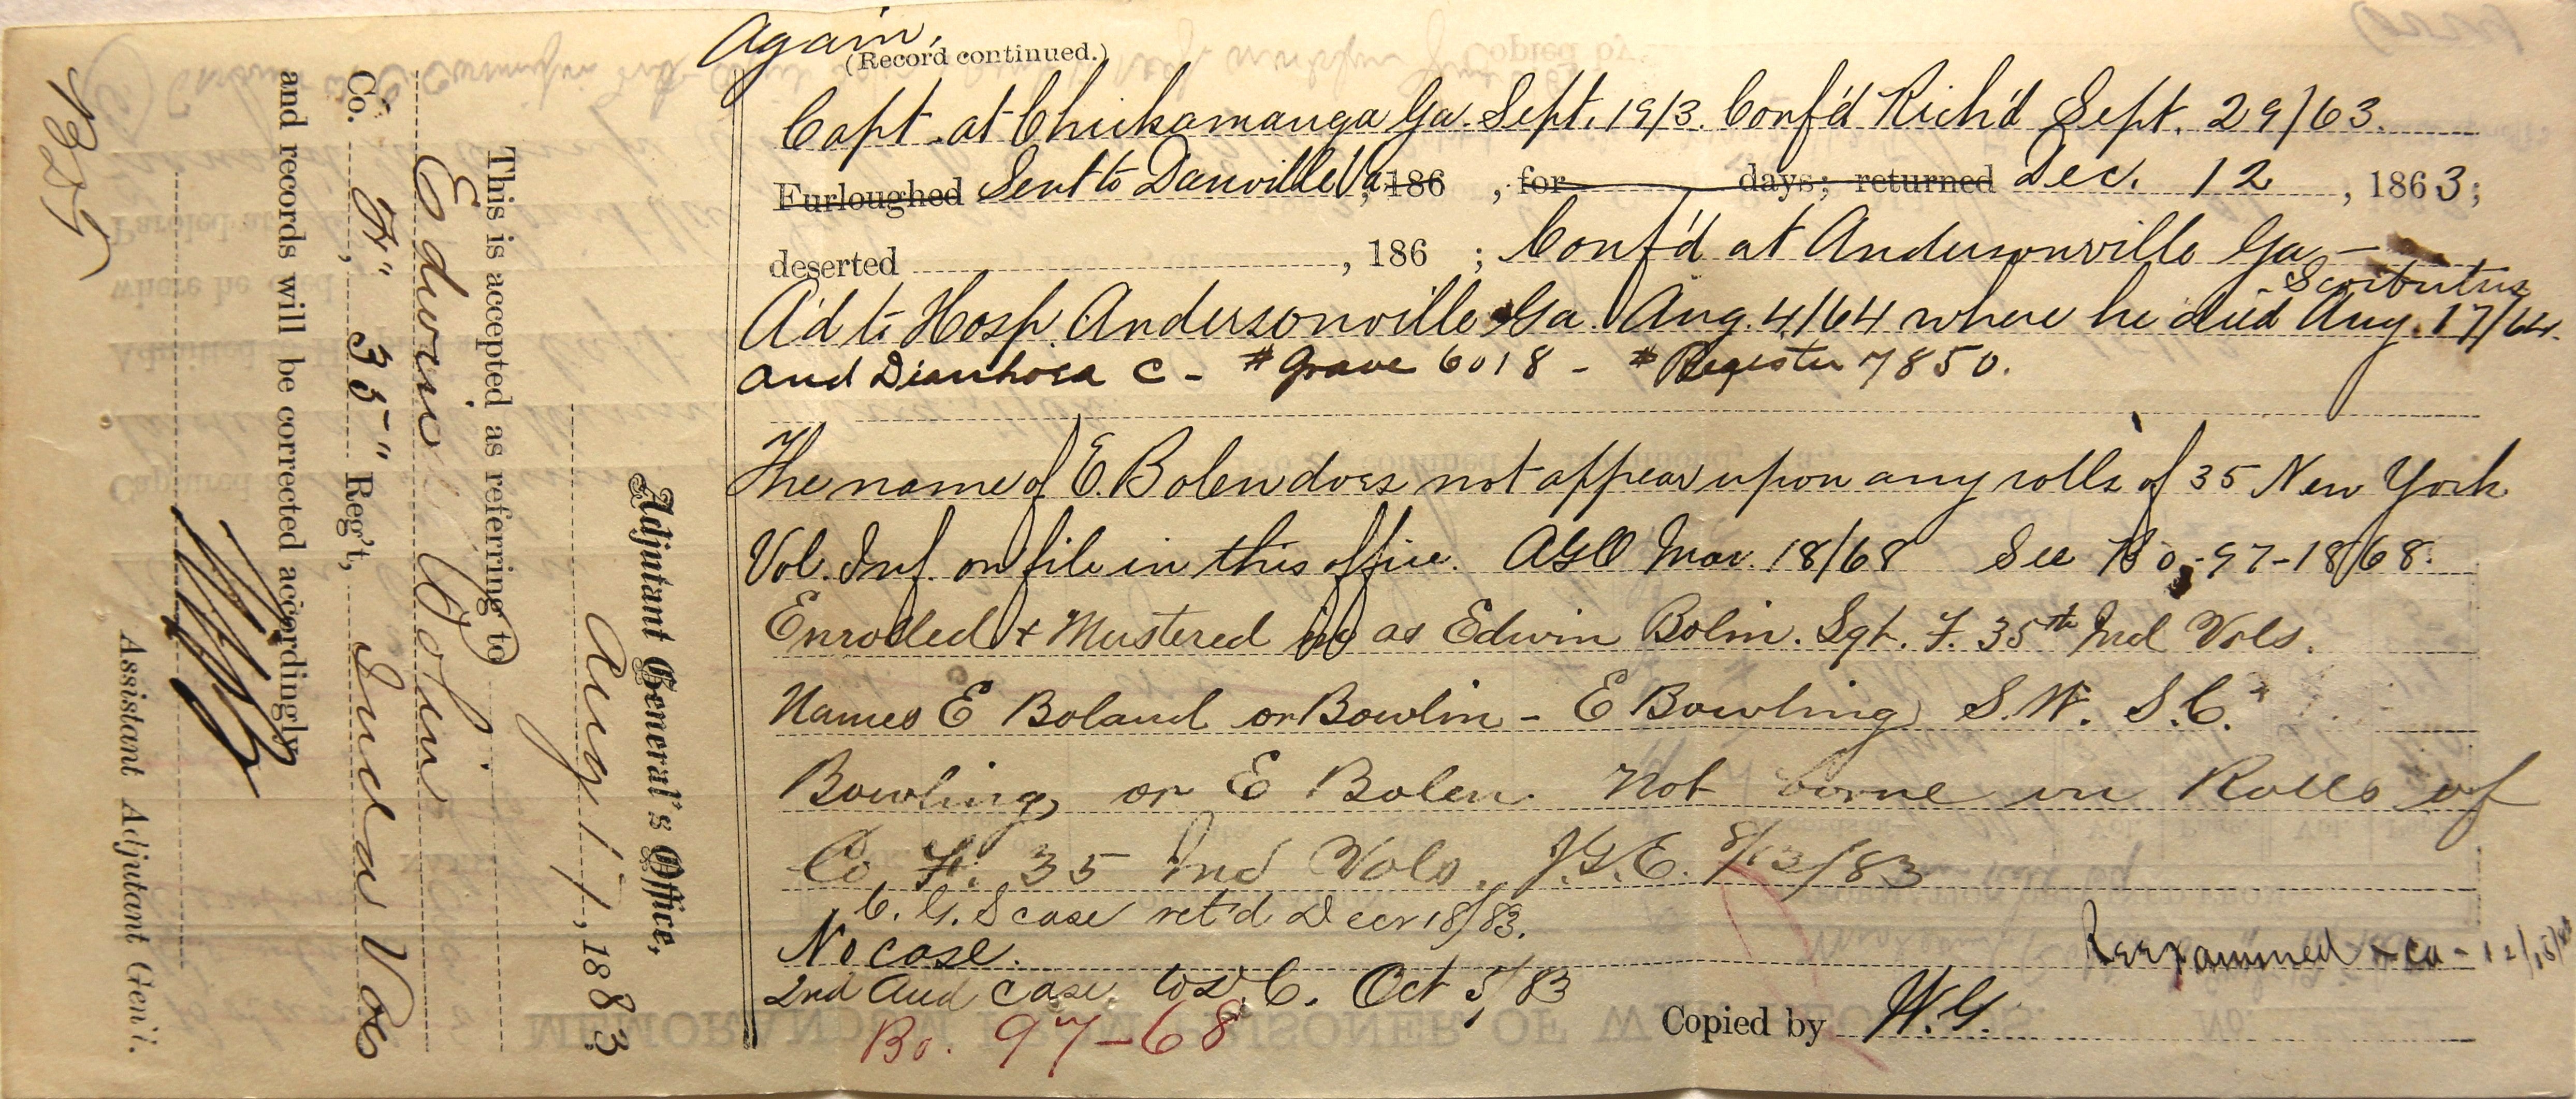 Again,
(Record continued.)
Capt. at Chickamauga Ga. Sept. 19/3. Conf'd Rich'd Sept. 29/63.
Furloughed Sent to Danville Va, 186 , for days; returned Dec. 12, 1863;
deserted , 186 ; Conf'd at Andersonville Ga -
Scorbutus
A'd to Hosp. Andersonville Ga Aug. 4/64 where he died Aug. 17/64.
and Diarrhoea C - #Grave 6018 - #Register 7850.
The name of E. Bolen does not appear upon any rolls of 35 New York
Vol. Inf. on file in this office. AGO Mar. 18/68 See Bo,-97-18/68.
Enrolled & Mustered in as Edwin Bolin. Sgt. F. 35th Ind Vols.
Names E Boland or Bowlin - E Bowling S.W. S.C.
Bowling, or E Bolen Not borne on Rolls of
Co F. 35 Ind Vols. J.G.E. 8/13/83
C. G. S case ret'd Decr 18/83.
No case.
2nd Aud case to S. C. Oct 5/83
Bo. 97-68
Reexamined & ca - 12/18/83
Copied by W.G.
Adjutant General's Office,
Aug 17, 1883
This is accepted as referring to
Edwin Bolin
Co. "F", 35" Reg't, Indna Vols
and records will be corrected accordingly
Assistant Adjutant Gen'l.